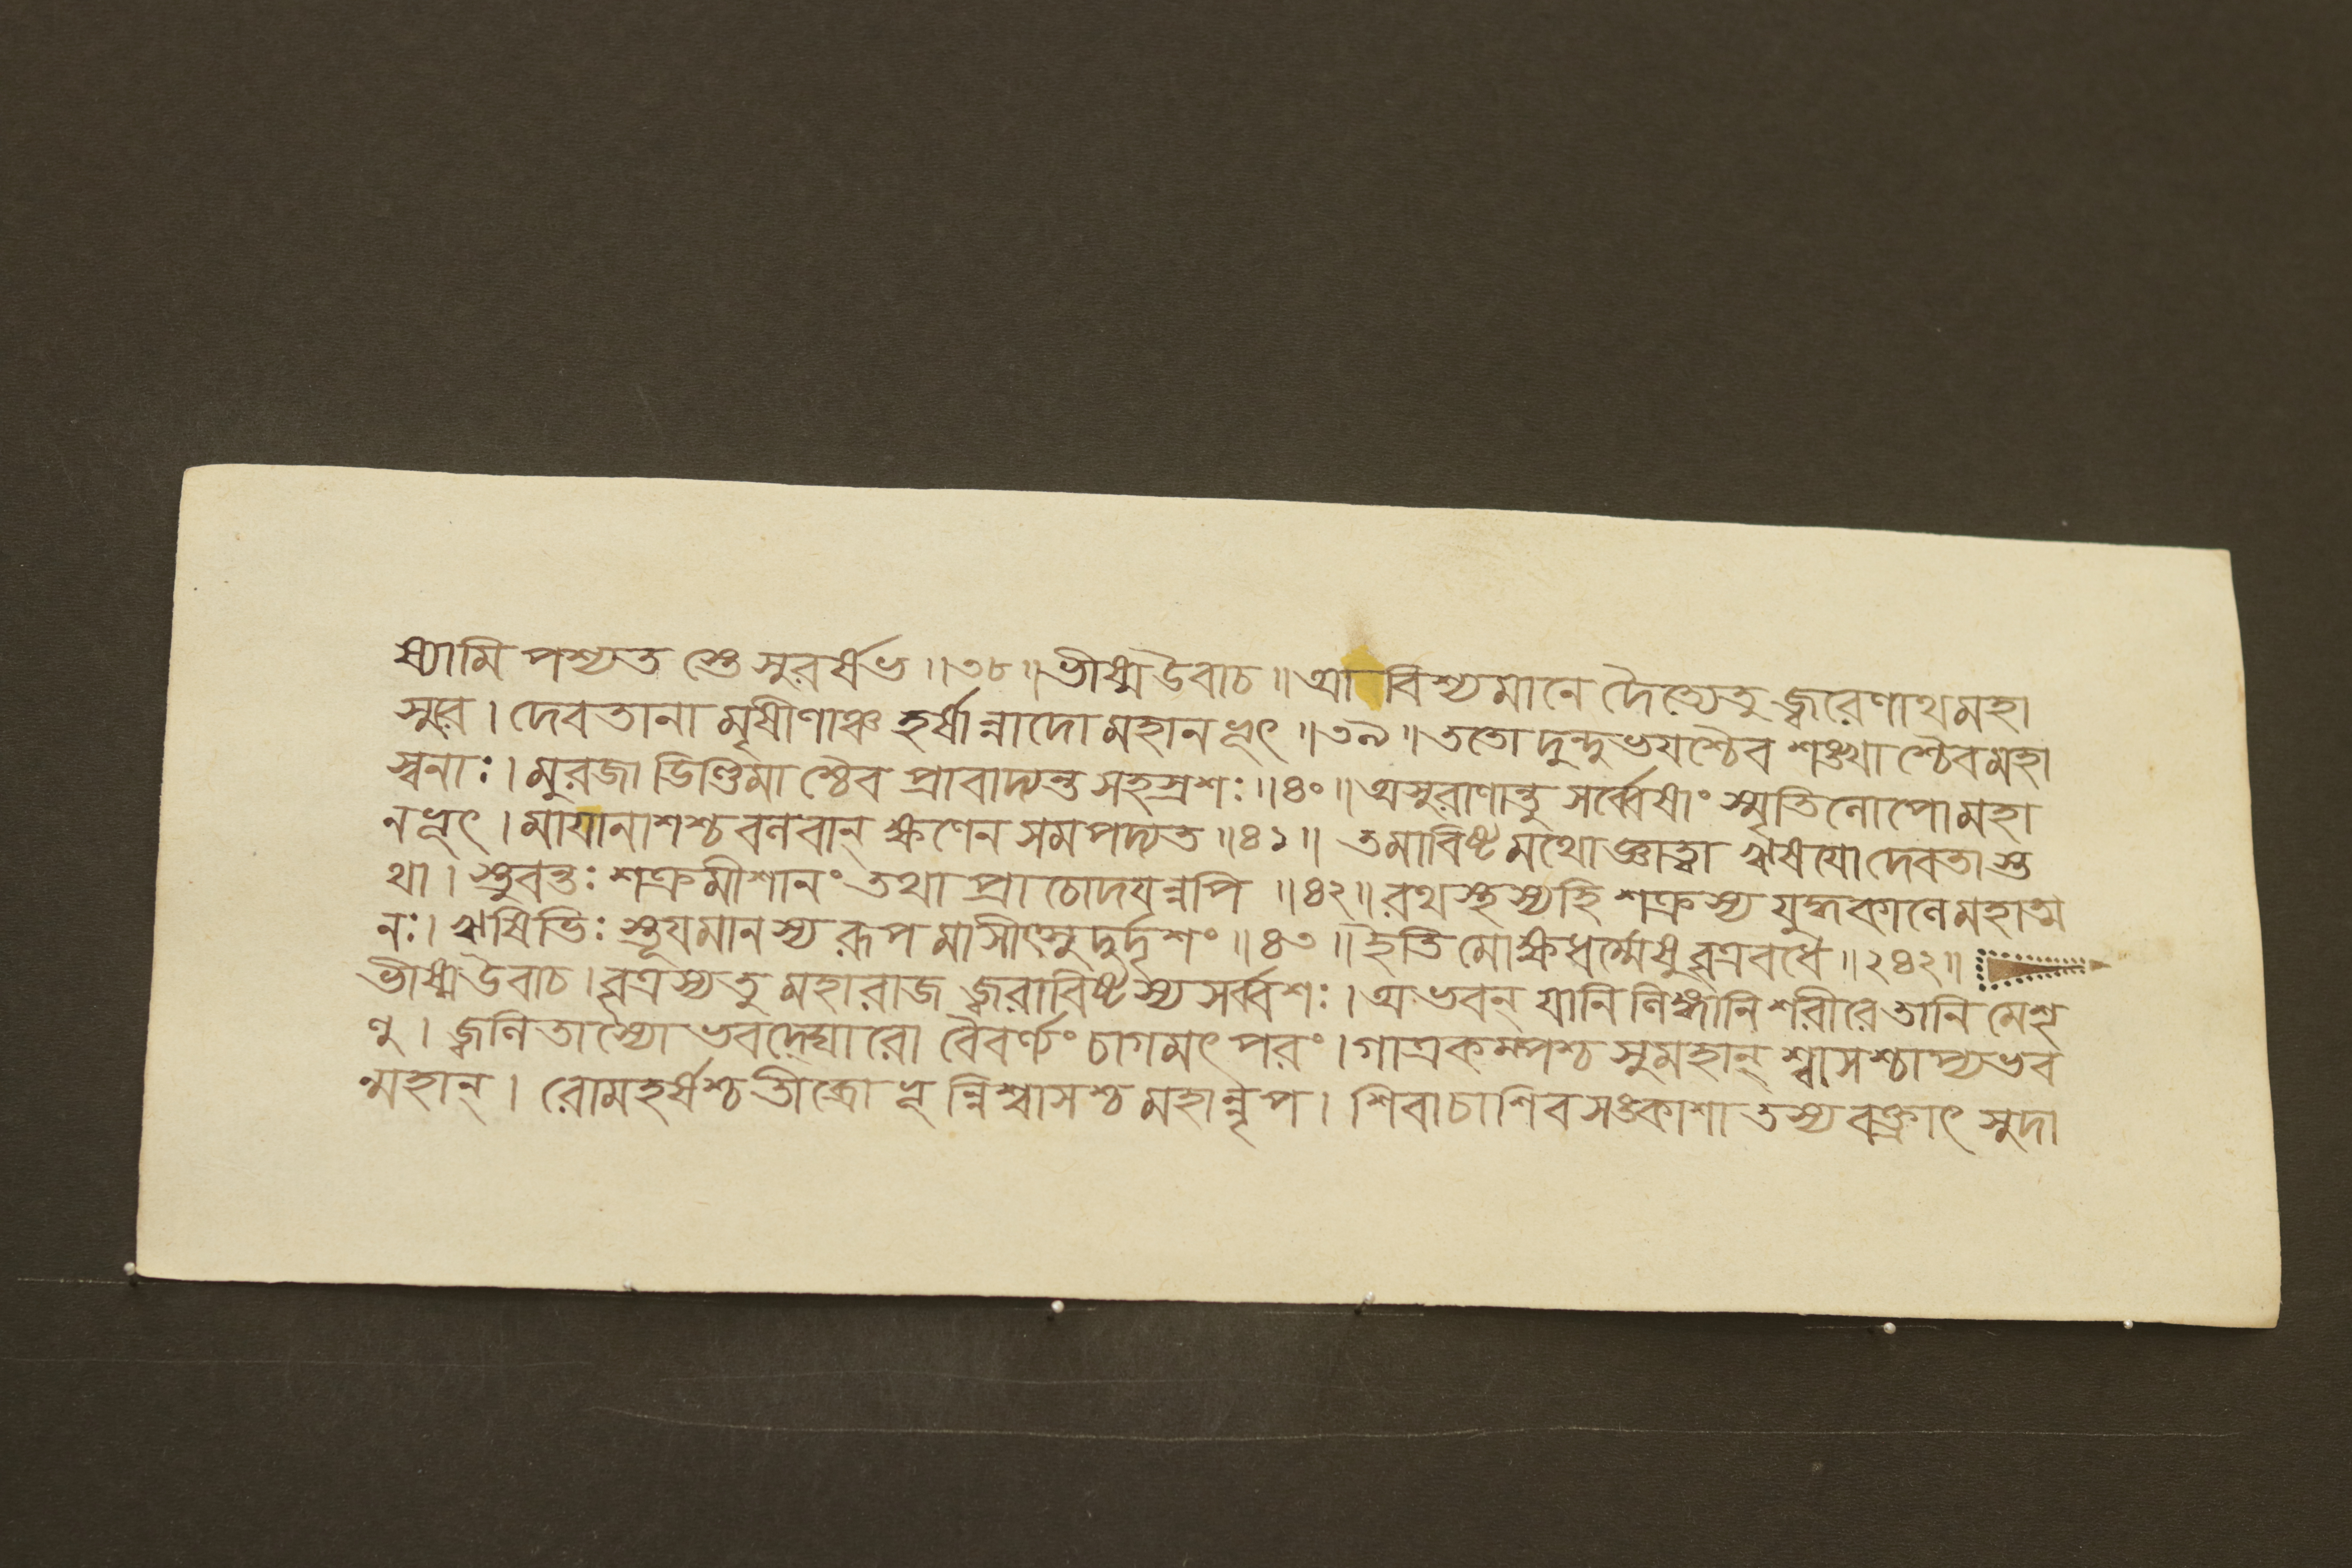 ষ্যামি পশ্যত স্তে সুরর্ষভ ॥৩৮॥ ভীষ্ম উবাচ ॥ আবিশ্যমানে দৈত্যেতু জ্বরেণাথ মহা
সুরে । দেবতানামৃষীণাঞ্চ হর্ষান্নাদো মহানভূৎ ॥৩৯॥ ততো দুন্দুভযশ্চৈব শঙ্খাশ্চৈব মহা
স্বনাঃ । মুরজা ডিণ্ডিমাশ্চৈব প্রাবাদ্যন্ত সহস্রশঃ ॥৪০॥ অসুরাণান্তু সর্ব্বেষাং স্মৃতিলোপো মহা
নভূৎ । মাযানাশশ্চ বলবান্ ক্ষণেন সমপদ্যত ॥৪১॥ তমাবিষ্টমথো জ্ঞাত্বা ঋষযো দেবতাস্ত
থা । স্তুবন্তঃ শক্রমীশানং তথা প্রাচোদযন্নপি ॥৪২॥ রথস্থস্য হি শক্রস্য যুদ্ধকালে মহাত্ম
নঃ । ঋষিভিঃ স্তূযমানস্য রূপমাসীৎ সুদুর্দৃশং ॥৪৩॥ ইতি মোক্ষধর্ম্মেষু বৃত্রবধে ॥২৪২॥
ভীষ্ম উবাচ । বৃত্রস্য তু মহারাজ জ্বরাবিষ্টস্য সর্ব্বশঃ । অভবন্ যানি লিঙ্গানি শরীরে তানি মে শৃ
ণু । জ্বলিতাস্যোভবদ্ঘোরো বৈবর্ণ্যং চাগমৎ পরং । গাত্রকম্পশ্চ সুমহান্ শ্বাসশ্চাপ্যভব
ন্মহান্ । রোমহর্ষশ্চ তীব্রোভূন্নিশ্বাসশ্চ মহান্নৃপ । শিবা চাশিবসঙ্কাশা তস্য বক্ত্রাৎ সুদা